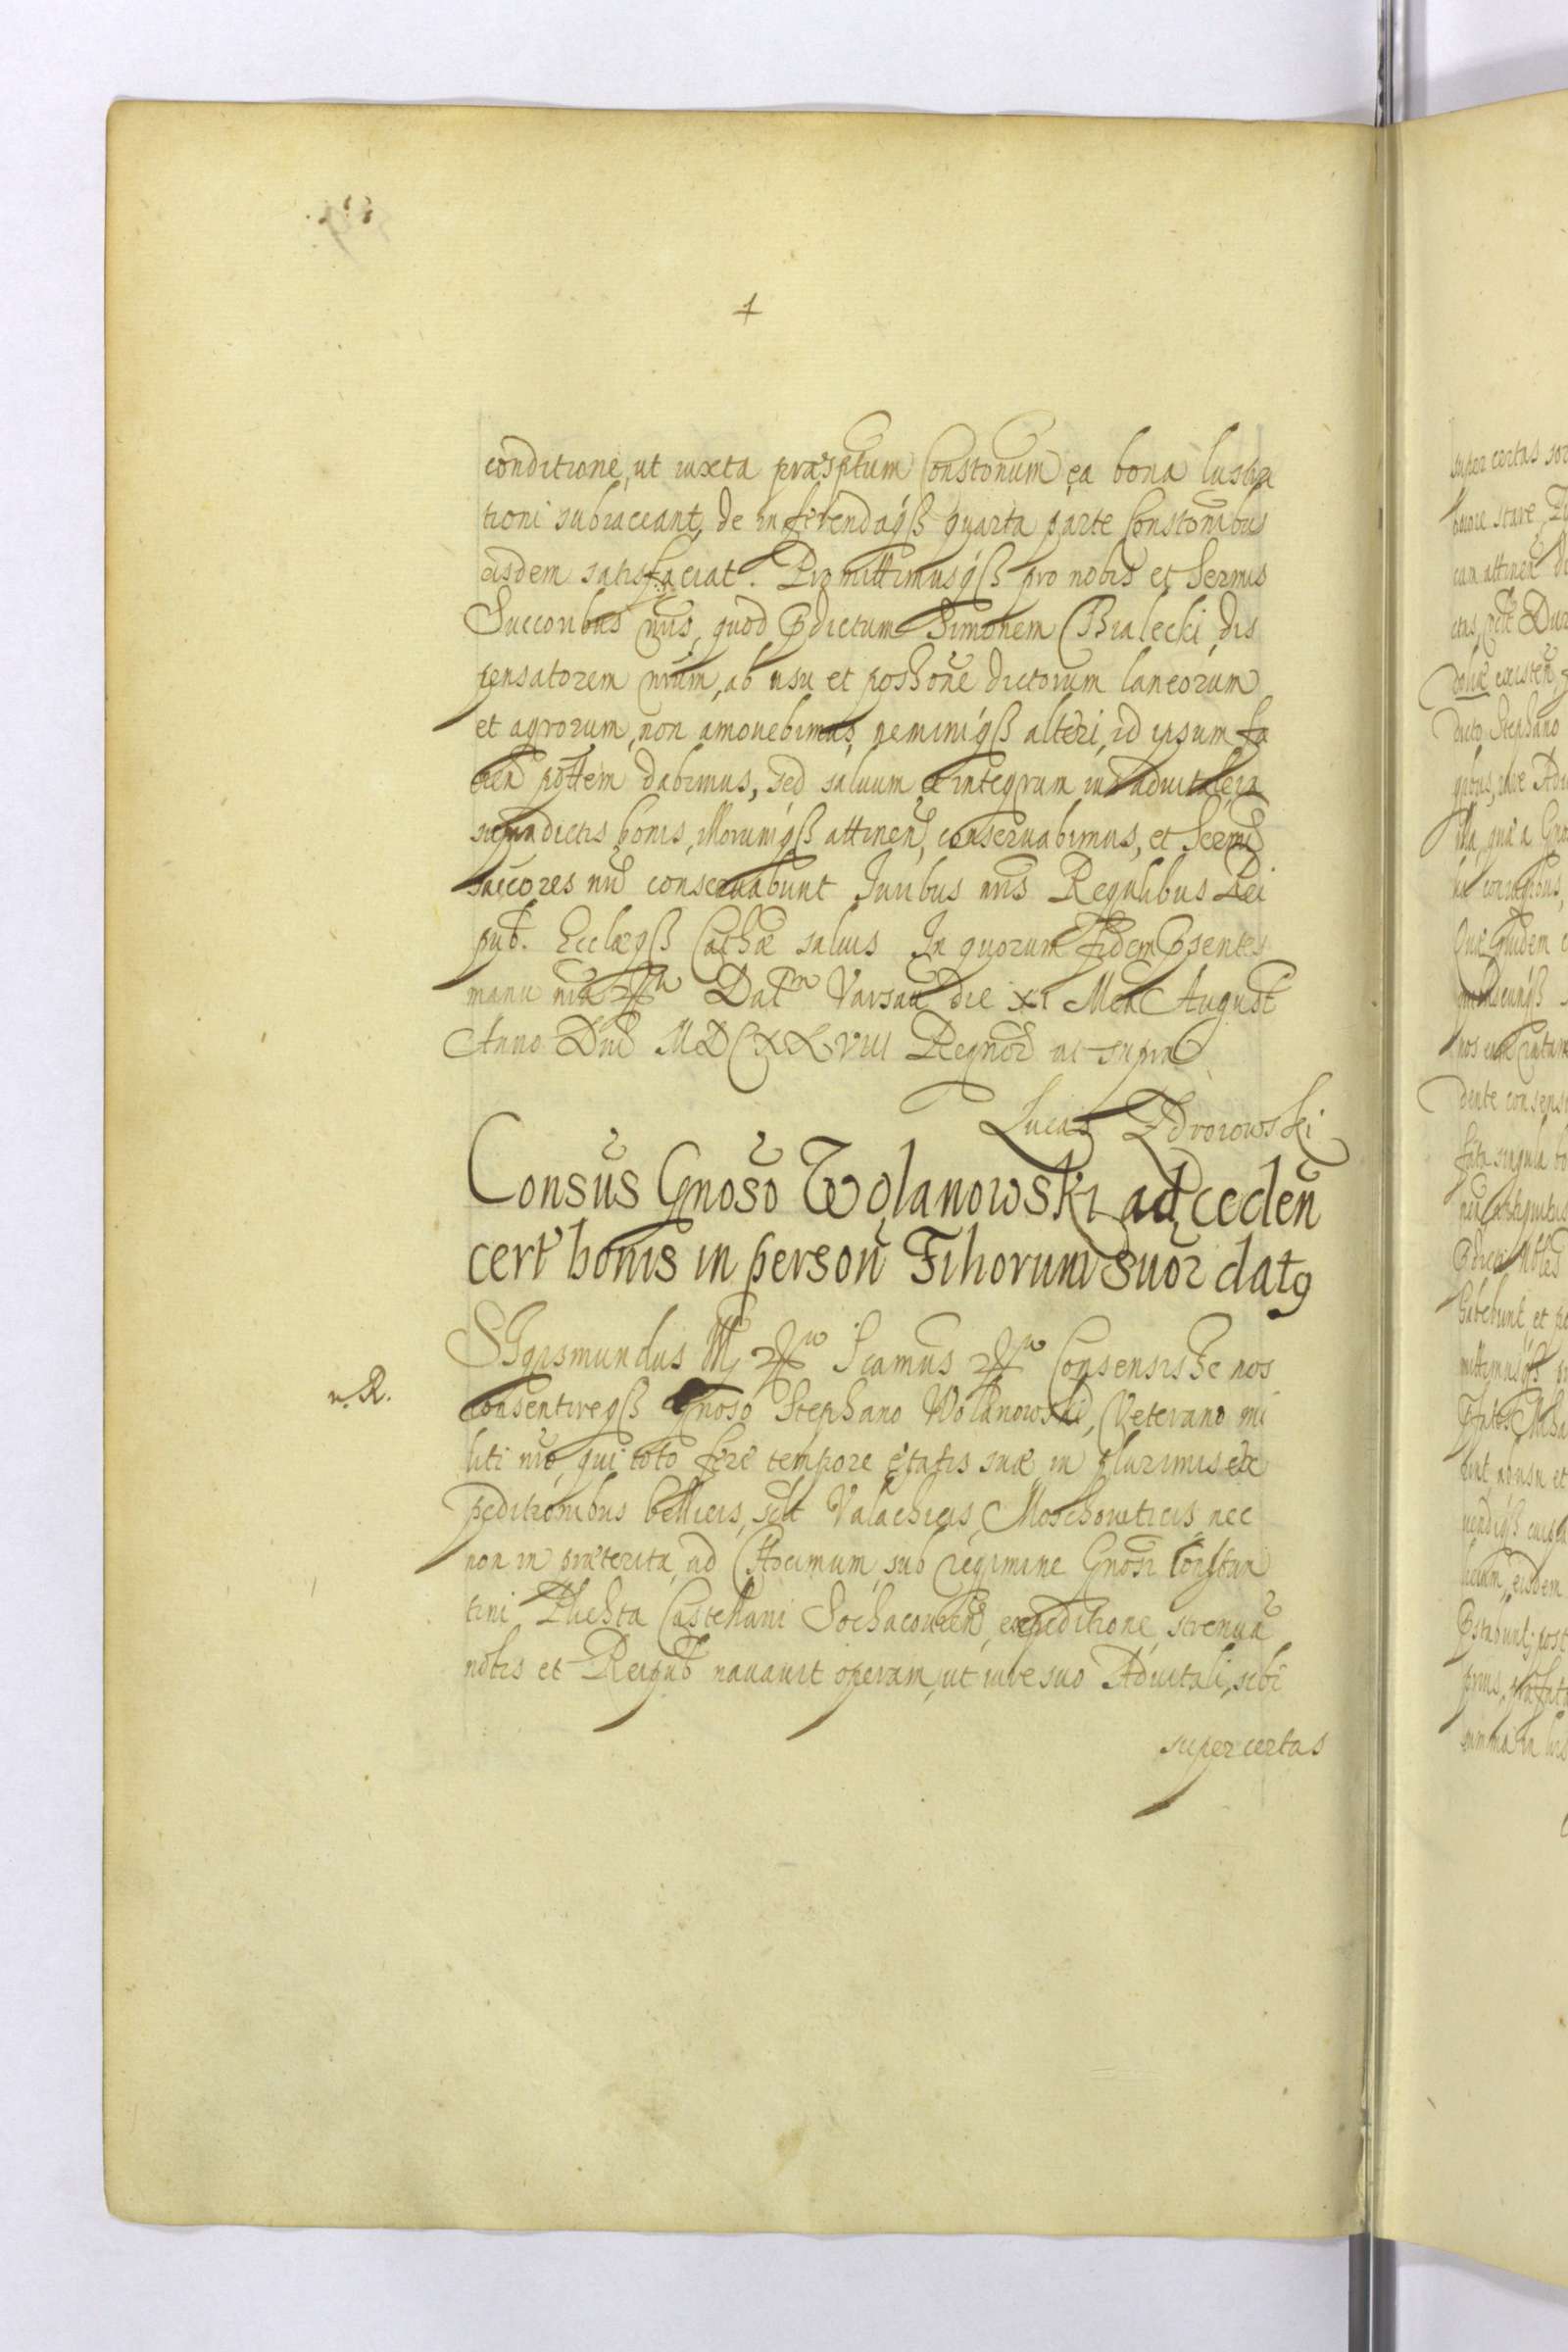 conditione, ut iuxta præsptum Constonum ea bona lustra
tioni subiaceant, de inferendaqß quarta parte Constonibus
eisdem satisfaciat. Promittimusqß pro nobis et Sermis
Succoribus nris, quod pdictum Simonem Bialecki, dis
pensatorem nrum, ab usu et possone dictorum laneorum
et agrorum, non amovebimus, neminiqß alteri, id ipsum fa
ciend pottem dabimus, sed saluum et integrum ius aduitale in
supradictis bonis, illorumqß attinen, conseruabimus, et Sermi
succores nri conseruabunt Iuribus nris Regalibus Rei
pub. Ecclæqß Cathæ saluis In quorum fidem psentes
manu nra Dat Varsau die XI Men August
Anno Dni MDCXXVIII Regnor ut supra
Lucas
Consus Gnoso Wolanowski ad ceden
cert bonis in person Filiorum suor datg
SIgismundus III Scamus Consensisse nos
n. R.
consentireqß Gnoso Stephano Wolanowski, Veterano mi
liti nro, qui toto fere tempore ętatis suæ in plurimis ex
peditionibus bellicis, scilt Valachicis, Moschouiticis nec
non in præterita, ad Chocimum, sub regimine Gnosi Constan
tini Plichta Castellani Sochacouien, expeditione, strenua
nobis et Reipub nauauit operam, ut iure suo Aduitali, sibi
super certas